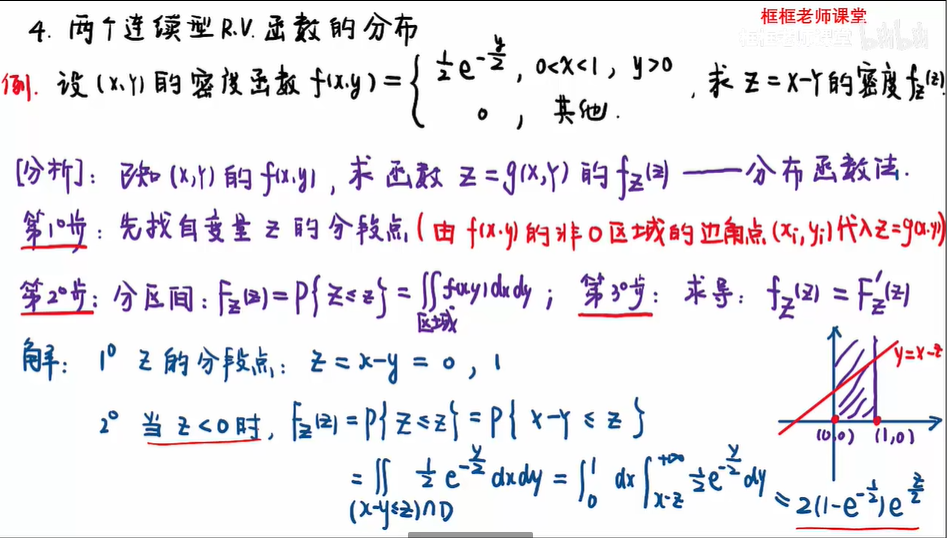 框框老师课堂
4. 两个连续型 R.V. 函数的分布
例. 设 (X,Y) 的密度函数 f(x,y) = { ½e^{-y/2}, 0<x<1, y>0
0, 其他. , 求 Z=X-Y 的密度 f_Z(z).
[分析]: 已知 (X,Y) 的 f(x,y), 求函数 Z=g(X,Y) 的 f_Z(z) —— 分布函数法.
第1°步: 先找自变量 z 的分段点 (由 f(x,y) 的非0区域的边角点 (x_i, y_i) 代入 z=g(x,y))
第2°步: 分区间: F_Z(z) = P{Z≤z} = ∬_{区域} f(x,y)dxdy ; 第3°步: 求导: f_Z(z) = F'_Z(z)
解: 1° z 的分段点: z = x-y = 0, 1
2° 当 z<0 时, F_Z(z) = P{Z≤z} = P{X-Y≤z}
= ∬_{(x-y≤z)∩D} ½e^{-y/2}dxdy = ∫_0^1 dx ∫_{x-z}^{+∞} ½e^{-y/2}dy = 2(1-e^{-1/2})e^{z/2}
y=x-z
(0,0) (1,0)